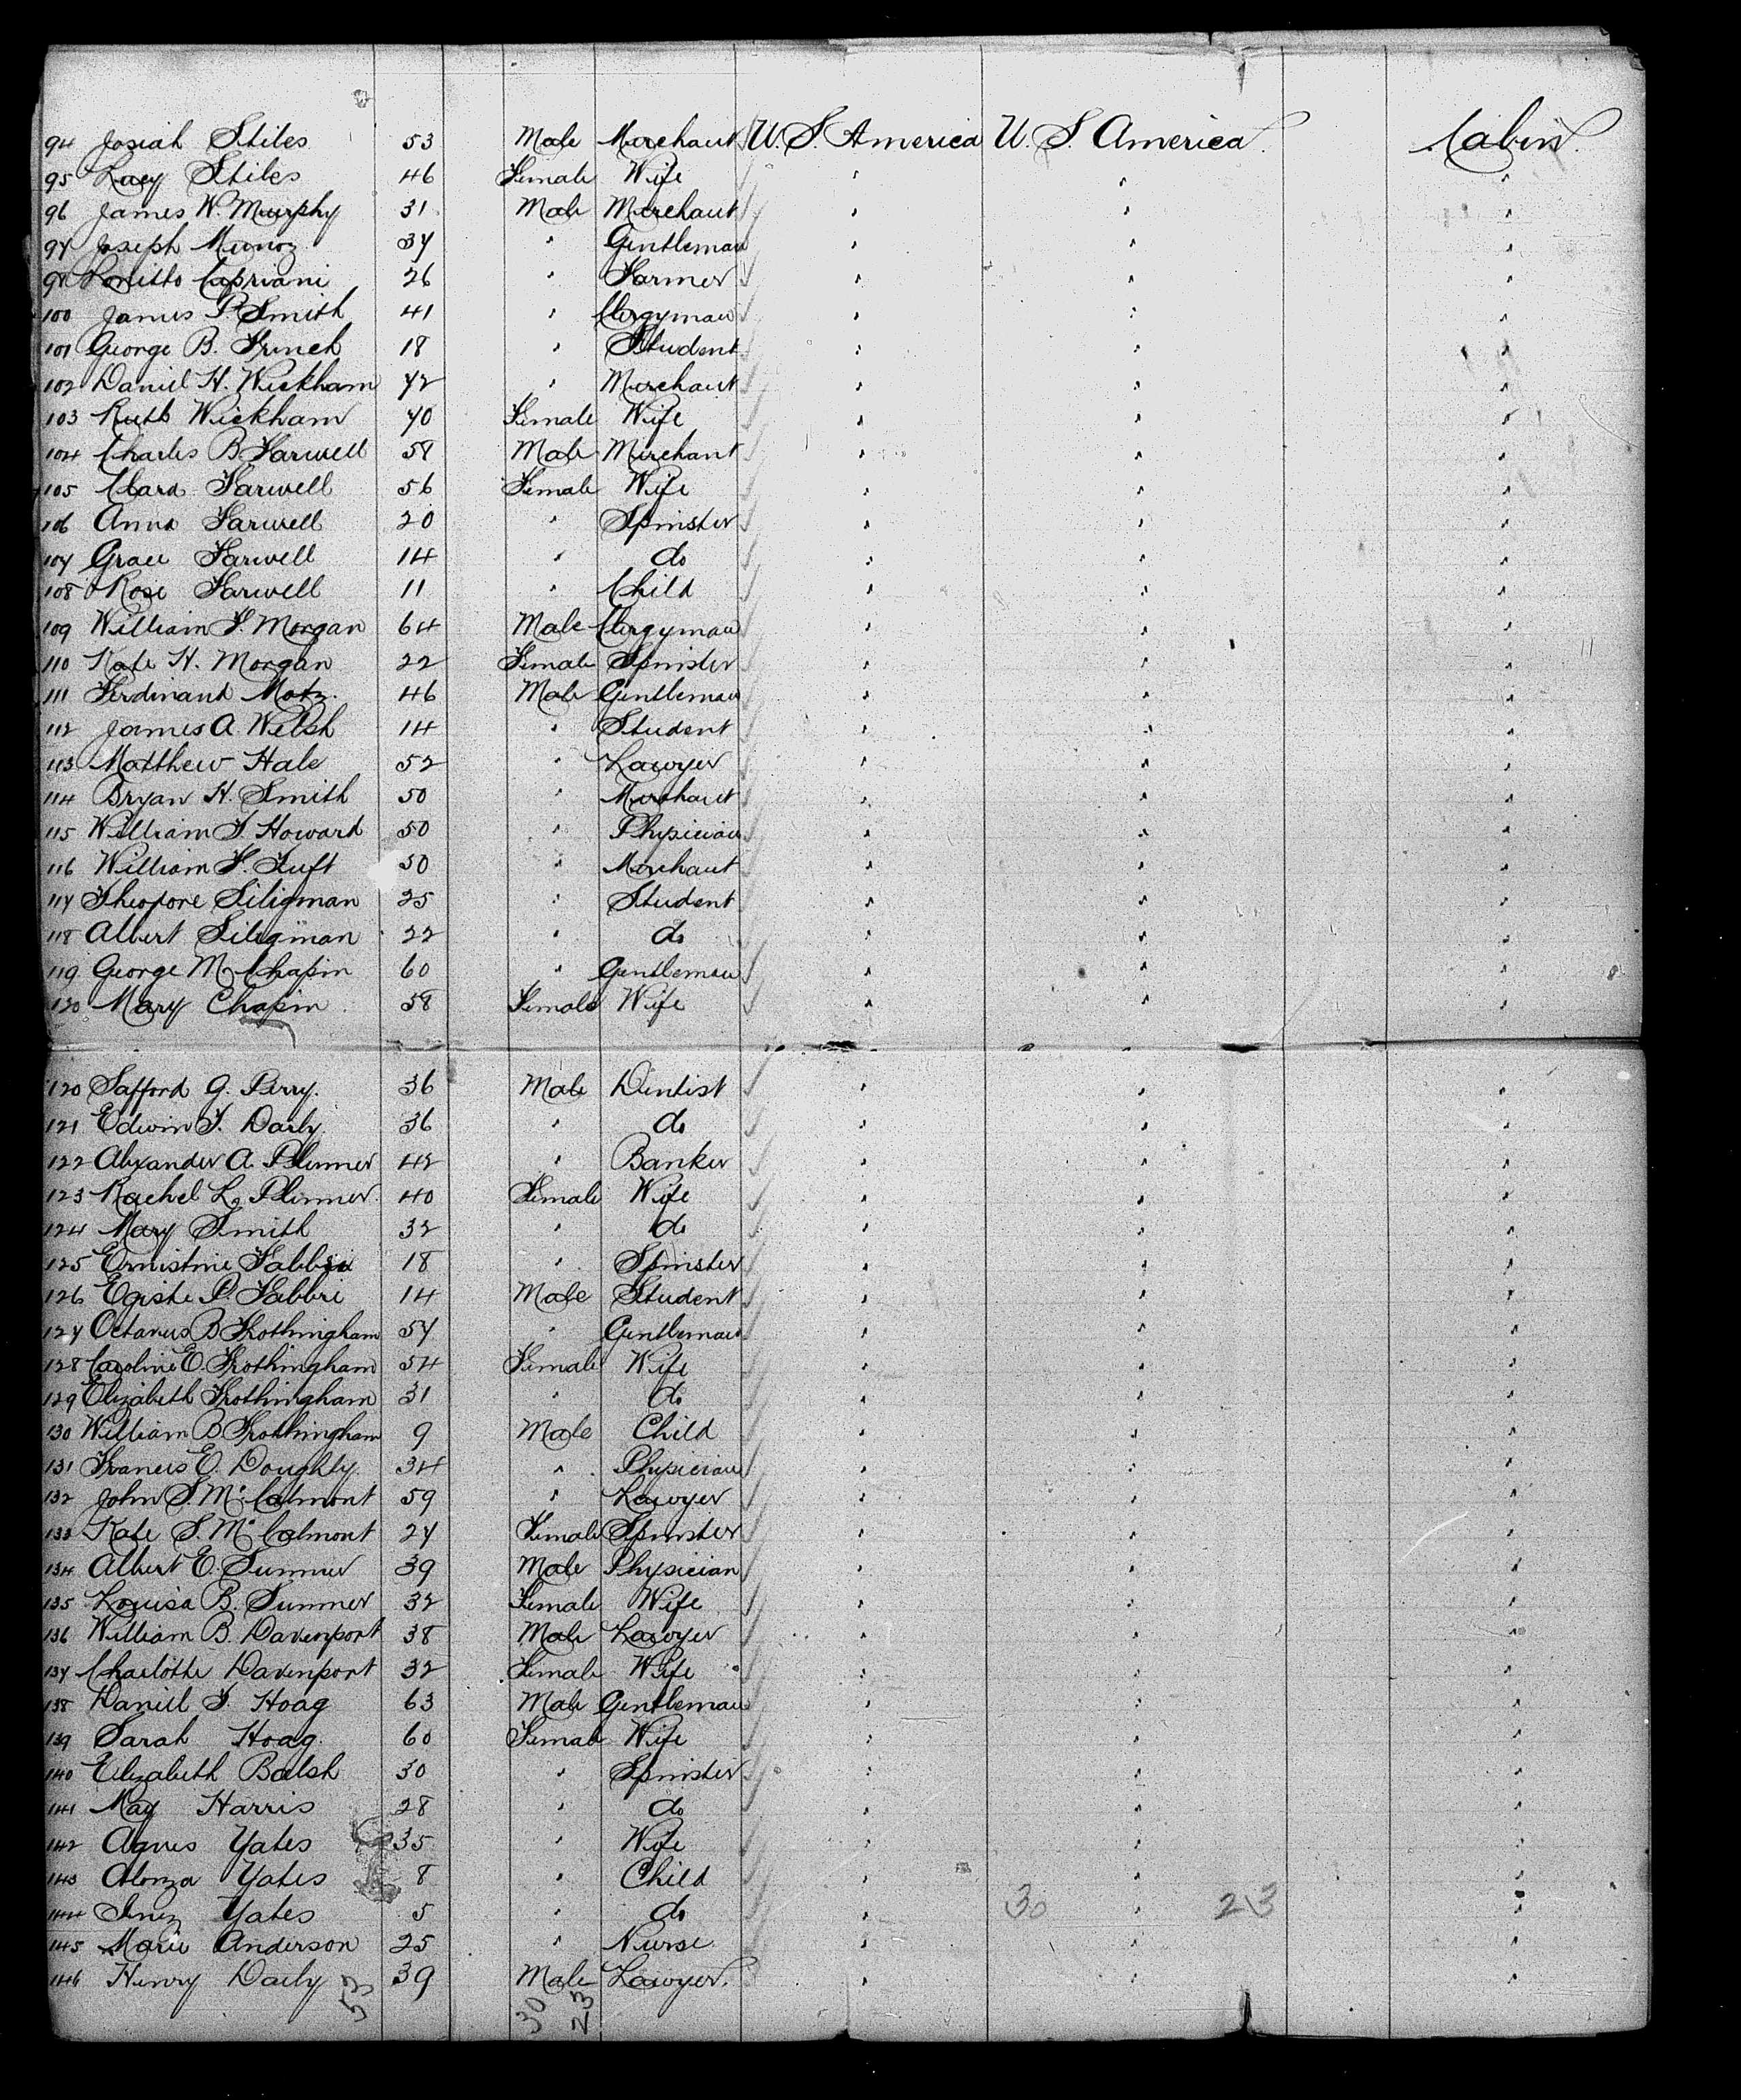 94 Josiah Stiles 53 Male Merchant U.S. America U.S. America Cabin
95 Lucy Stiles 46 Female Wife " " "
96 James W. Murphy 31 Male Merchant " " "
97 Joseph Munoz 37 " Gentleman " " "
98 Cipriani 26 " Farmer " " "
100 James P. Smith 41 " Clergyman " " "
101 George B. French 18 " Student " " "
102 Daniel H. Wickham 72 " Merchant " " "
103 Ruth Wickham 70 Female Wife " " "
104 Charles B. Farwell 58 Male Merchant " " "
105 Clara Farwell 56 Female Wife " " "
106 Anna Farwell 20 " Spinster " " "
107 Grace Farwell 14 " do " " "
108 Rose Farwell 11 " Child " " "
109 William F. Morgan 64 Male Clergyman " " "
110 Kate H. Morgan 22 Female Spinster " " "
111 Ferdinand Motz 46 Male Gentleman " " "
112 James A. Welsh 14 " Student " " "
113 Matthew Hale 52 " Lawyer " " "
114 Bryan H. Smith 50 " Merchant " " "
115 William T. Howard 50 " Physician " " "
116 William F. Tuft 50 " Merchant " " "
117 Theodore Siligman 25 " Student " " "
118 Albert Siligman 22 " do " " "
119 George M. Chapin 60 " Gentleman " " "
120 Mary Chapin 58 Female Wife " " "
120 Safford G. Perry 36 Male Dentist " " "
121 Edwin T. Darby 36 " do " " "
122 Alexander A. Plumer 42 " Banker " " "
123 Rachel L. Plumer 40 Female Wife " " "
124 Mary Smith 32 " do " " "
125 Ernistine Fabbri 18 " Spinster " " "
126 Egiste P. Fabbri 14 Male Student " " "
127 Octavus B Frothingham 57 " Gentleman " " "
128 Caroline E. Frothingham 54 Female Wife " " "
129 Elizabeth Frothingham 31 " do " " "
130 William B Frothingham 9 Male Child " " "
131 Francis E. Doughty 34 " Physician " " "
132 John S. Mc Calmont 59 " Lawyer " " "
133 Kate S. Mc Calmont 27 Female Spinster " " "
134 Albert E. Sumner 39 Male Physician " " "
135 Louisa B. Sumner 32 Female Wife " " "
136 William B. Davenport 38 Male Lawyer " " "
137 Charlotte Davenport 32 Female Wife " " "
138 Daniel T. Hoag 63 Male Gentleman " " "
139 Sarah Hoag 60 Female Wife " " "
140 Elizabeth Balsh 30 " Spinster " " "
141 May Harris 28 " do " " "
142 Agnes Yates 35 " Wife " " "
143 Alonza Yates 8 " Child " " "
144 Inez Yates 5 " do " 30 " 23 "
145 Marie Anderson 25 " Nurse " " "
146 Henry Daily 39 Male Lawyer " " "
53 30 23